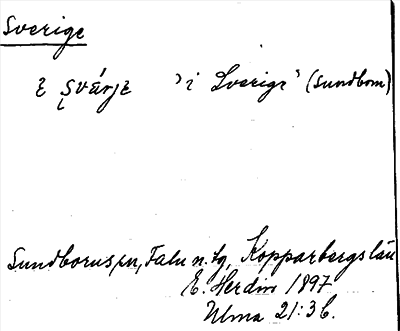 Sverige
ɛ svárjɛ 'i Sverige' (Sundborn)
Sundborns sn, Falu n. tg, Kopparbergs län
E. Herdin 1897
Ulma 21:3 b.